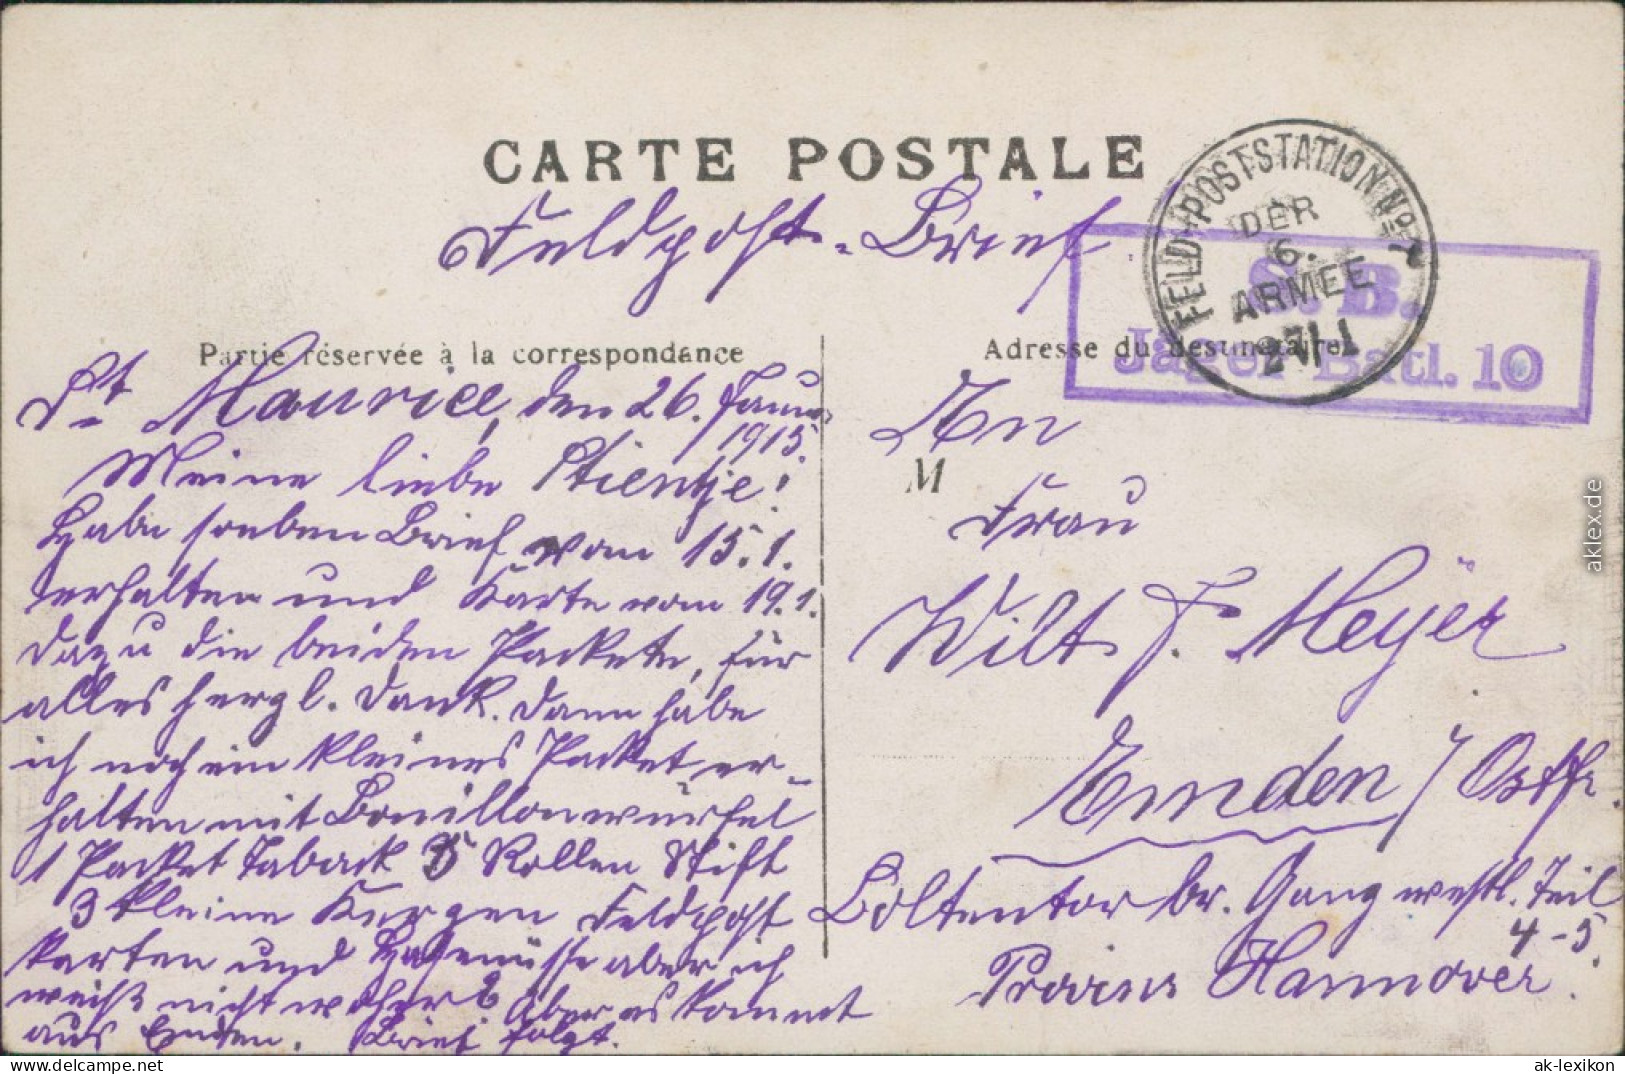 CARTE POSTALE
Feldpost-Brief
FELD-POSTSTATION No 7
DER
6.
ARMEE
27 I 1
S. B.
Jäger Batl. 10
Partie réservée à la correspondance
Adresse du destinataire
St Maurice, den 26. Januar
1915.
Meine liebe Stientje!
Habe soeben Brief vom 15.1.
erhalten und Karte vom 19.1.
dazu die beiden Packete, für
alles herzl. Dank. Dann habe
ich noch ein kleines Packet er-
halten mit Bouillonwürfel
1 Packet Taback 5 Rollen Stift
3 kleine Kerzen Feldpost
karten und Haselnüsse aber ich
weiß nicht woher? Aber es kommt
aus Emden. Brief folgt.
An
M
Frau
Wilt F. Meyer
Emden / Ostfr.
Boltentor br. Gang westl. Teil
4-5.
Provinz Hannover.
aklex.de
www.delcampe.net
ak-lexikon